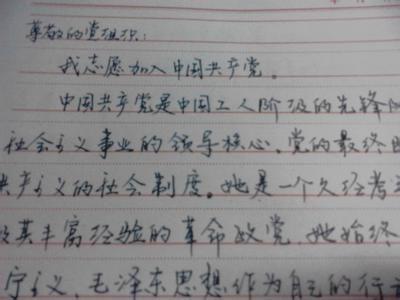 尊敬的党组织:
我志愿加入中国共产党。
中国共产党是中国工人阶级的先锋
社会主义事业的领导核心。党的最终
共产主义的社会制度。她是一个久经考
及其丰富经验的革命政党,她始终
宁主义、毛泽东思想作为自己的行